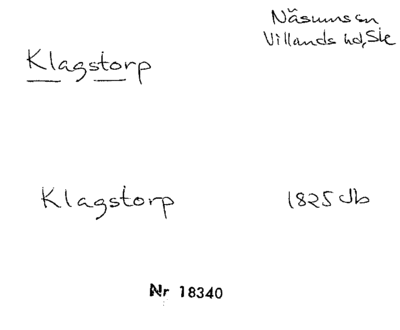 Näsums sn
Villands hd, Skå
Klagstorp
Klagstorp 1825 Jb
Nr 18340